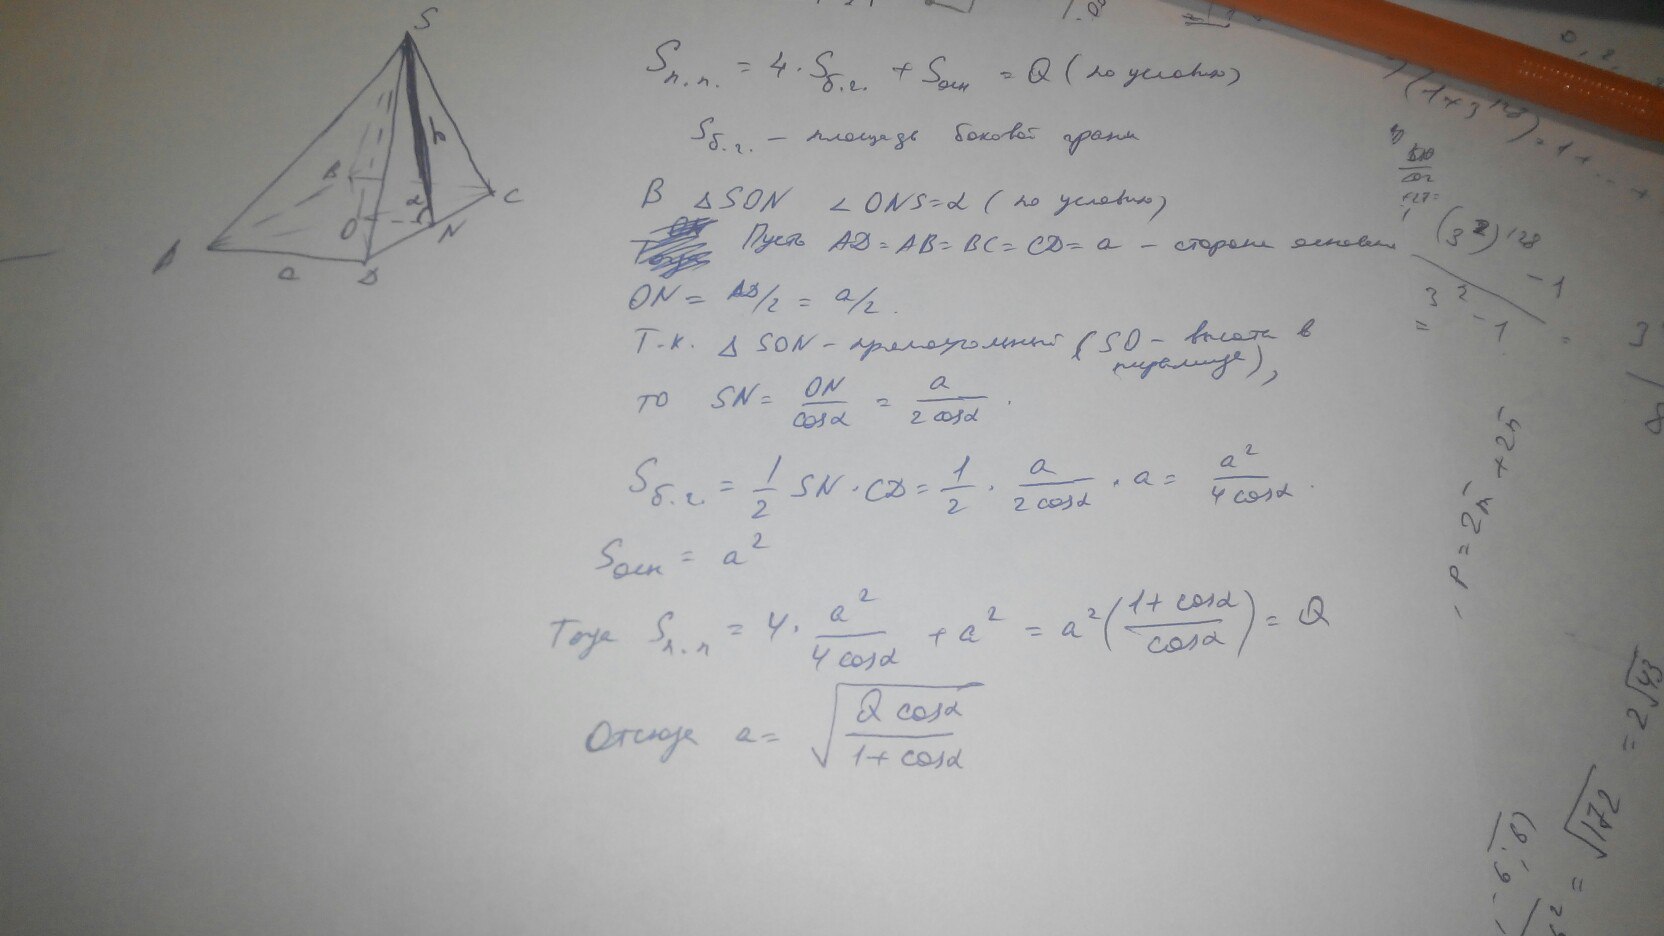 S
h
B
C
α
O
N
A
a
D
Sп.п. = 4·Sб.г. + Sосн = Q (по условию)
Sб.г. – площадь боковой грани
В △SON ∠ONS=α (по условию)
Пусть AD=AB=BC=CD=a – сторона основания
ON = AD/2 = a/2.
Т.к. △SON – прямоугольный (SO – высота в пирамиде),
то SN = ON/cosα = a/(2cosα).
Sб.г. = 1/2 SN·CD = 1/2 · a/(2cosα) · a = a²/(4cosα).
Sосн = a²
Тогда Sп.п = 4· a²/(4cosα) + a² = a²((1+cosα)/cosα) = Q
Отсюда a = √(Q cosα/(1+cosα))
(3²)¹²⁸ - 1
3² - 1
=
P = 2π + 2π
= √172 = 2√43